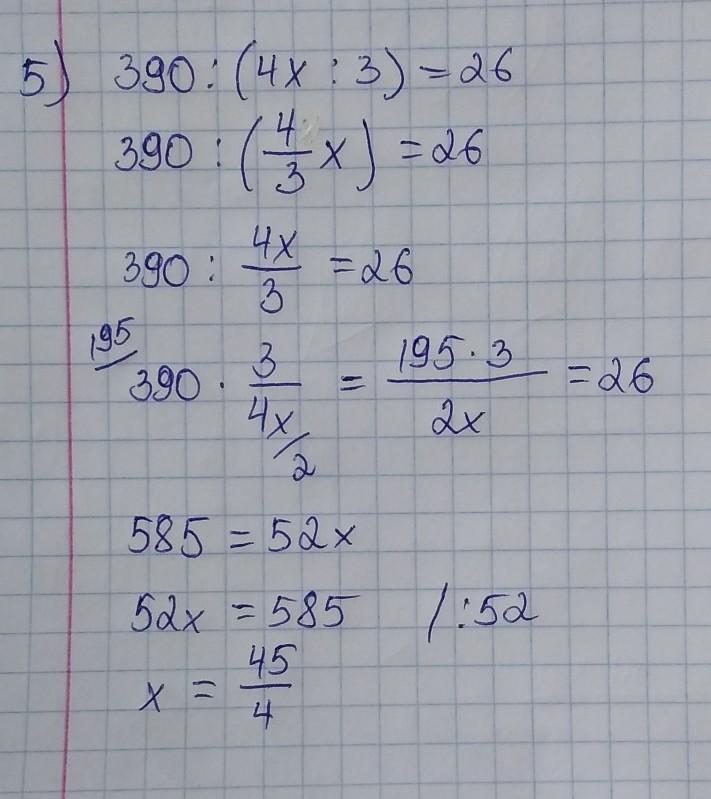 5) 390 : (4x : 3) = 26
390 : (4/3 x) = 26
390 : 4x/3 = 26
195/ 390 · 3/4x /2 = 195 · 3/2x = 26
585 = 52x
52x = 585 /:52
x = 45/4